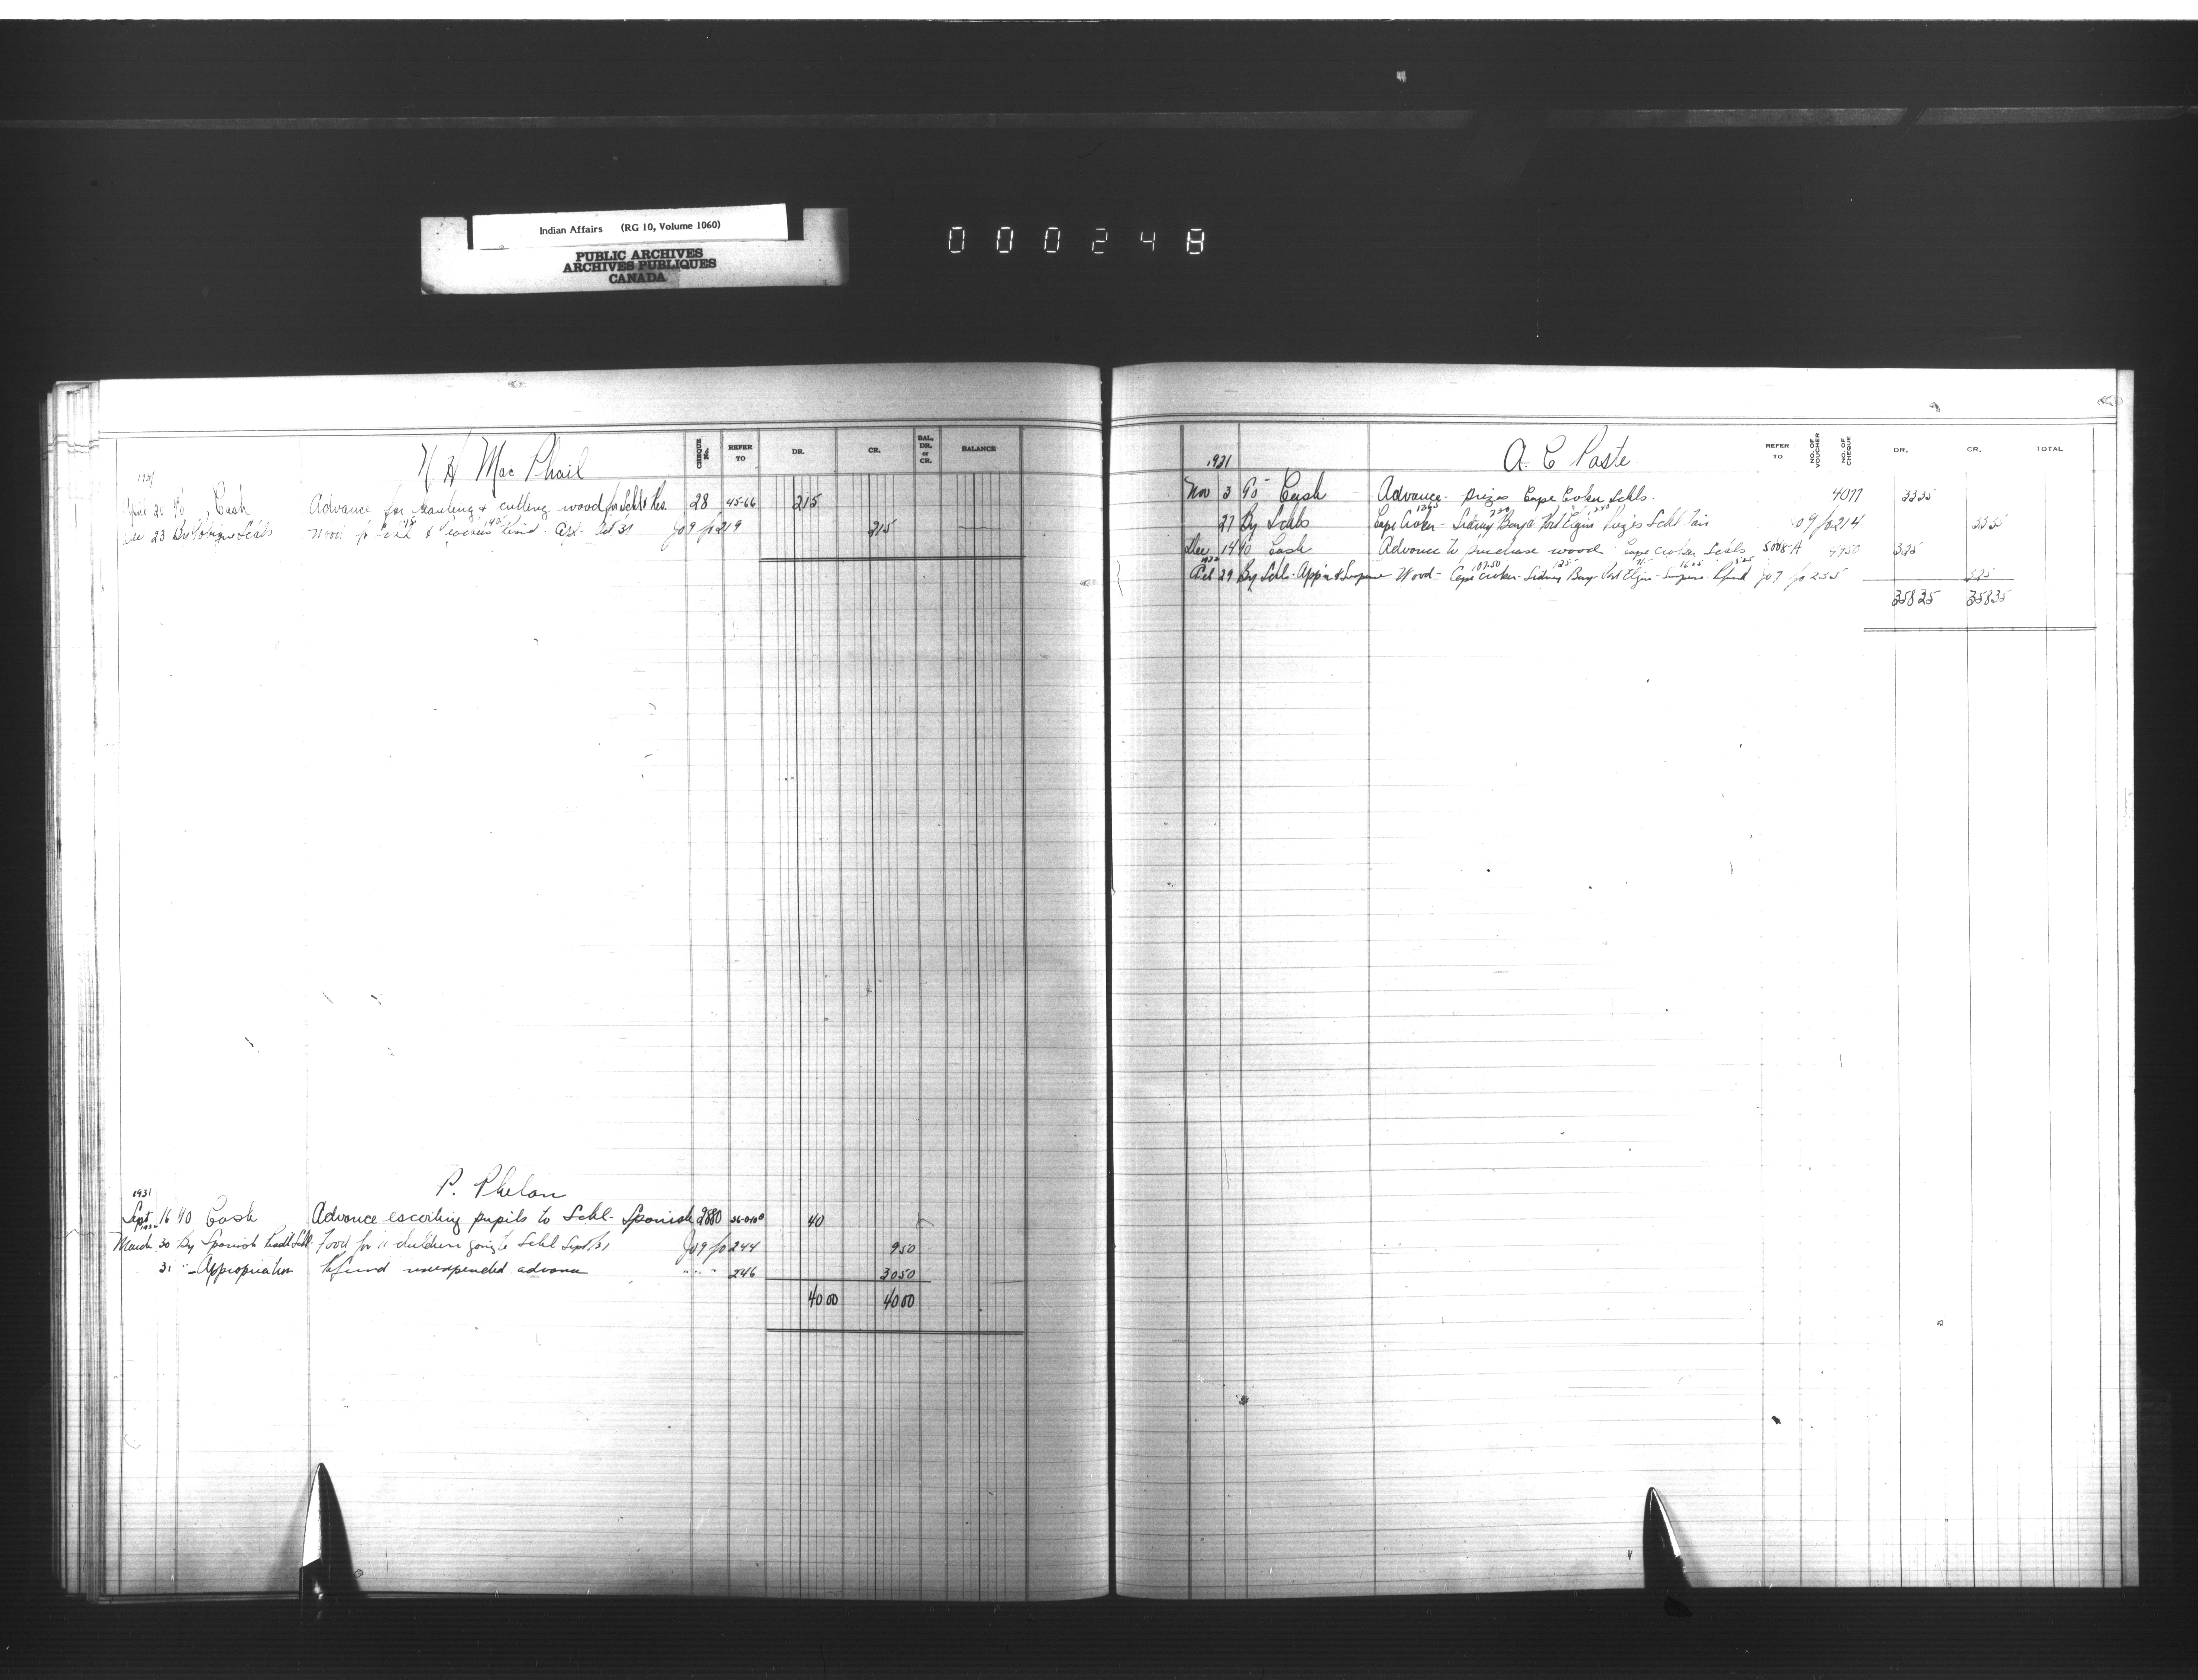 Indian Affairs (RG 10, Volume 1060)
PUBLIC ARCHIVES
ARCHIVES PUBLIQUES
CANADA
000248
N H Mac Phail
CHEQUE No.
REFER TO
DR.
CR.
BAL. DR. or CR.
BALANCE
1931
April 20 To Cash Advance for hauling & cutting wood for Schls Res. 28 45-66 215
Dec 23 By Schls Wood for Schl & 31 Jo 9 fo 219 215
P. Phelan
1931
Sept 16 To Cash Advance escorting pupils to Schl - Spanish 2880 40
March 30 By Spanish Schl Food for 11 children going to Schl Sept/31 Jo 9 fo 244 9 50
31 " - Appropriation Refund unexpended advance " " " 246 30 50
40 00 40 00
1931
A. C Poste
REFER TO
NO. OF VOUCHER
NO. OF CHEQUE
DR.
CR.
TOTAL
Nov 3 To Cash Advance - prizes Cape Croker Schls. 4077 33 35
27 By Schls Cape Croker - Sidney Bay & Port Elgin Prizes Schl Fair Jo 9 fo 214 33 35
Dec 14 To Cash Advance to purchase wood Cape Croker Schls 5008-A 325
Feb 29 By Schl. App'n & Suspense Wood - Cape Croker - Sidney Bay Port Elgin - Suspense - Refund Jo 9 fo 235 325
358 35 358 35